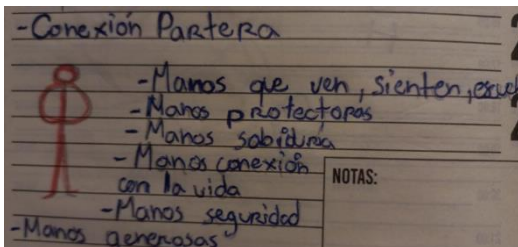 -Conexión Partera
-Manos que ven, sienten,
-Manos protectoras
-Manos sabiduría
-Manos conexión
con la vida
NOTAS:
-Manos seguridad
-Manos generosas